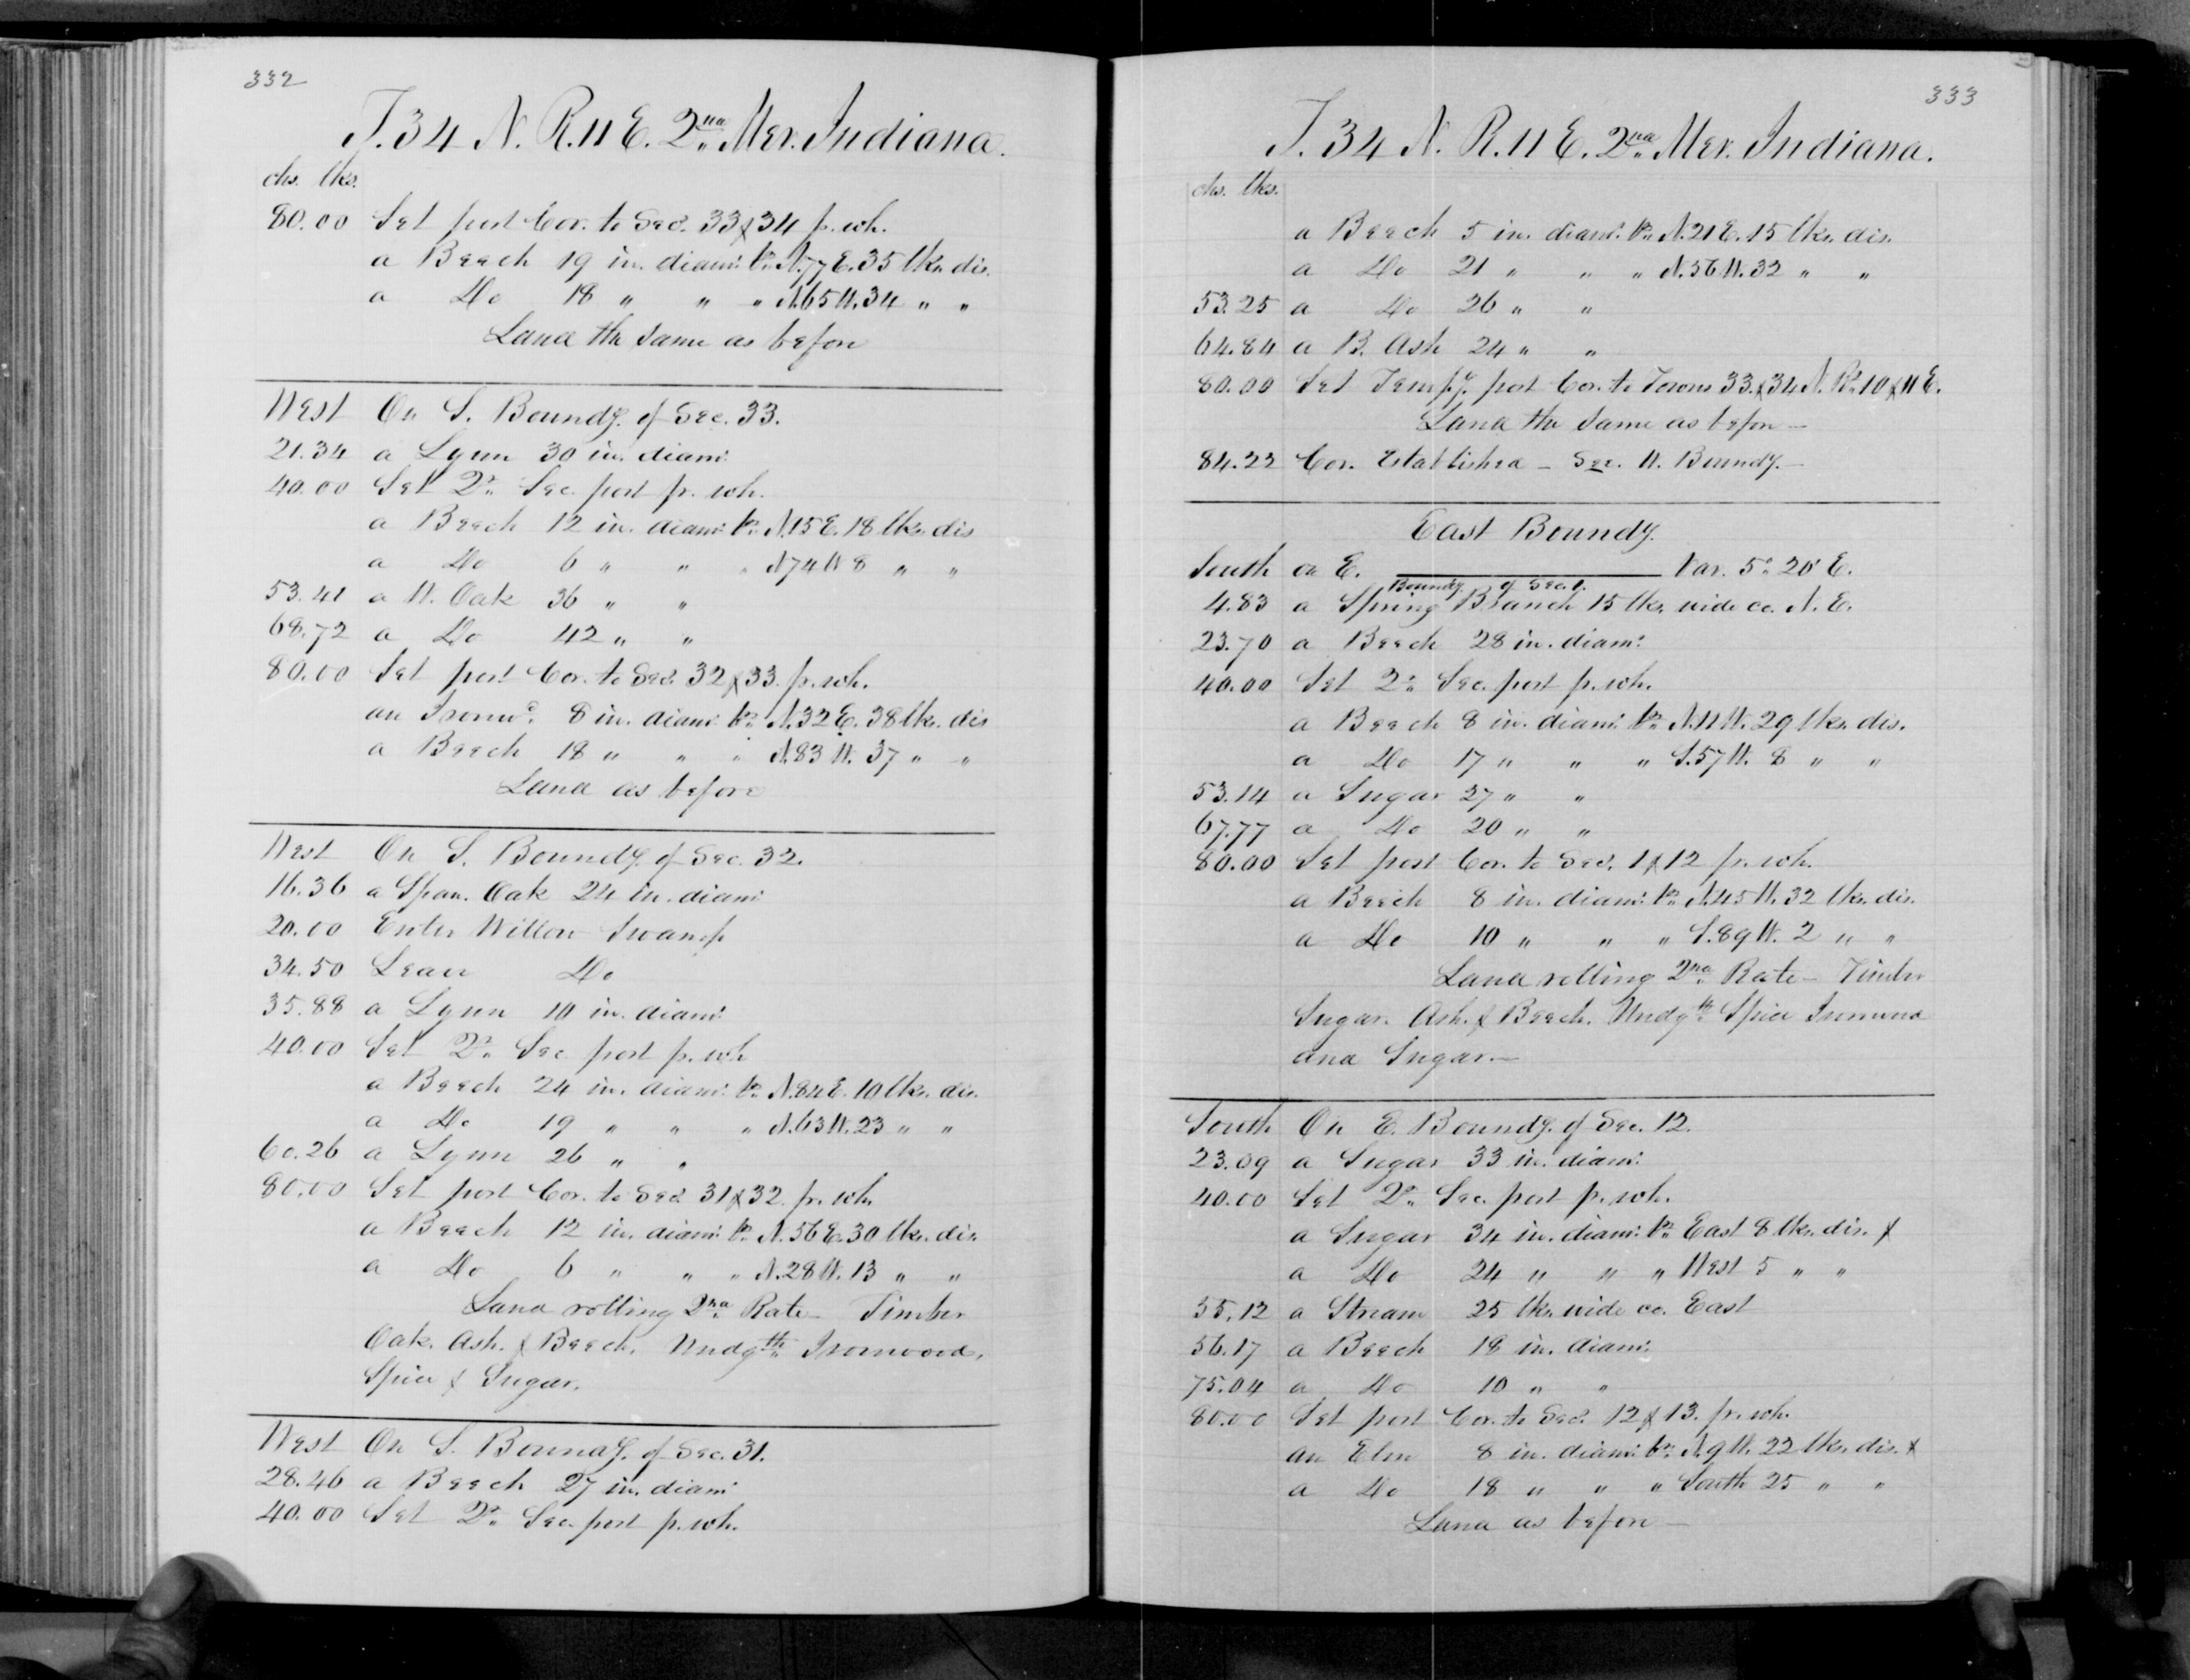 332
T. 34 N. R. 11 E. 2nd Mer. Indiana.
chs. lks.
80.00 Set post Cor. to Secs. 33 & 34 fr. wh.
a Beech 19 in. diam: br. N. 77 E. 35 lks. dis.
a Do 18 " " " N. 65 W. 34 " "
Land the same as before
West On S. Boundy. of Sec. 33.
21.34 a Lynn 30 in. diam:
40.00 Set 2r. Sec. post fr. wh.
a Beech 12 in. diam: br. N. 15 E. 18 lks. dis
a Do 6 " " " N 74 W 8 " "
53.41 a W. Oak 36 " "
68.72 a Do 42 " "
80.00 Set post Cor. to Secs. 32 & 33. fr. wh.
an Ironwd. 8 in. diam: br. N. 32 E. 38 lks. dis
a Beech 18 " " " N. 83 W. 37 " "
Land as before
West On S. Boundy. of Sec. 32.
16.36 a Span. Oak 24 in. diam:
20.00 Enter Willow Swamp
34.50 Leave Do
35.88 a Lynn 10 in. diam:
40.00 Set 2r. Sec. post fr. wh
a Beech 24 in. diam: br. N. 84 E. 10 lks. dis.
a Do 19 " " " N. 63 W. 23 " "
60.26 a Lynn 26 " "
80.00 Set post Cor. to Secs 31 & 32 fr. wh.
a Beech 12 in. diam: br. N. 56 E. 30 lks. dis.
a Do 6 " " " N. 28 W. 13 " "
Land rolling 2nd Rate - Timber
Oak. Ash. & Beech. Undgth. Ironwood,
Spice & Sugar.
West On S. Boundy. of Sec. 31.
28.46 a Beech 27 in. diam:
40.00 Set 2r. Sec. post fr. wh.
333
T. 34 N. R. 11 E. 2nd Mer. Indiana.
chs. lks.
a Beech 5 in. diam: br. N. 21 E. 15 lks. dis.
a Do 21 " " " N. 56 W. 32 " "
53.25 a Do 26 " "
64.84 a B. Ash 24 " "
80.00 Set Tempy. post Cor. to Towns 33. & 34 N. Rs. 10 & 11 E.
Land the same as before —
84.22 Cor. Established - See W. Boundy. —
East Boundy.
South on E. Boundy. of Sec. 1. Var. 5° 20' E.
4.83 a Spring Branch 15 lks. wide co. N. E.
23.70 a Beech 28 in. diam:
40.00 Set 2r. Sec. post fr. wh.
a Beech 8 in. diam: br. N. 11 W. 29 lks. dis.
a Do 17 " " " S. 57 W. 8 " "
53.14 a Sugar 27 " "
67.77 a Do 20 " "
80.00 Set post Cor. to Secs. 1 & 12 fr. wh.
a Beech 8 in. diam: br. N. 45 W. 32 lks. dis.
a Do 10 " " " S. 89 W. 2 " "
Land rolling 2nd Rate - Timber
Sugar. Ash. & Beech. Undgth. Spice Ironwood
and Sugar. —
South On E. Boundy. of Sec. 12.
23.09 a Sugar 33 in. diam:
40.00 Set 2r. Sec. post fr. wh.
a Sugar 34 in. diam: br. East 8 lks. dis. &
a Do 24 " " " West 5 " "
55.12 a Stream 25 lks. wide co. East
56.17 a Beech 18 in. diam:
75.04 a Do 10 " "
80.00 Set post Cor. to Secs. 12 & 13. fr. wh.
an Elm 8 in. diam: br. N. 9 W. 22 lks. dis. &
a Do 18 " " " South 25 " "
Land as before —